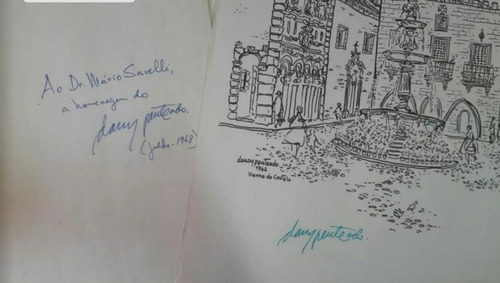 Ao Dr. Mário Savelli,
a homenagem do
danypenteado.
(julho-1968)
danypenteado
1962
Vianna do Castelo
danypenteado.